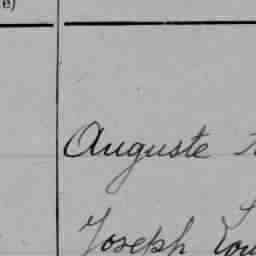 e)
Auguste
Joseph Lou